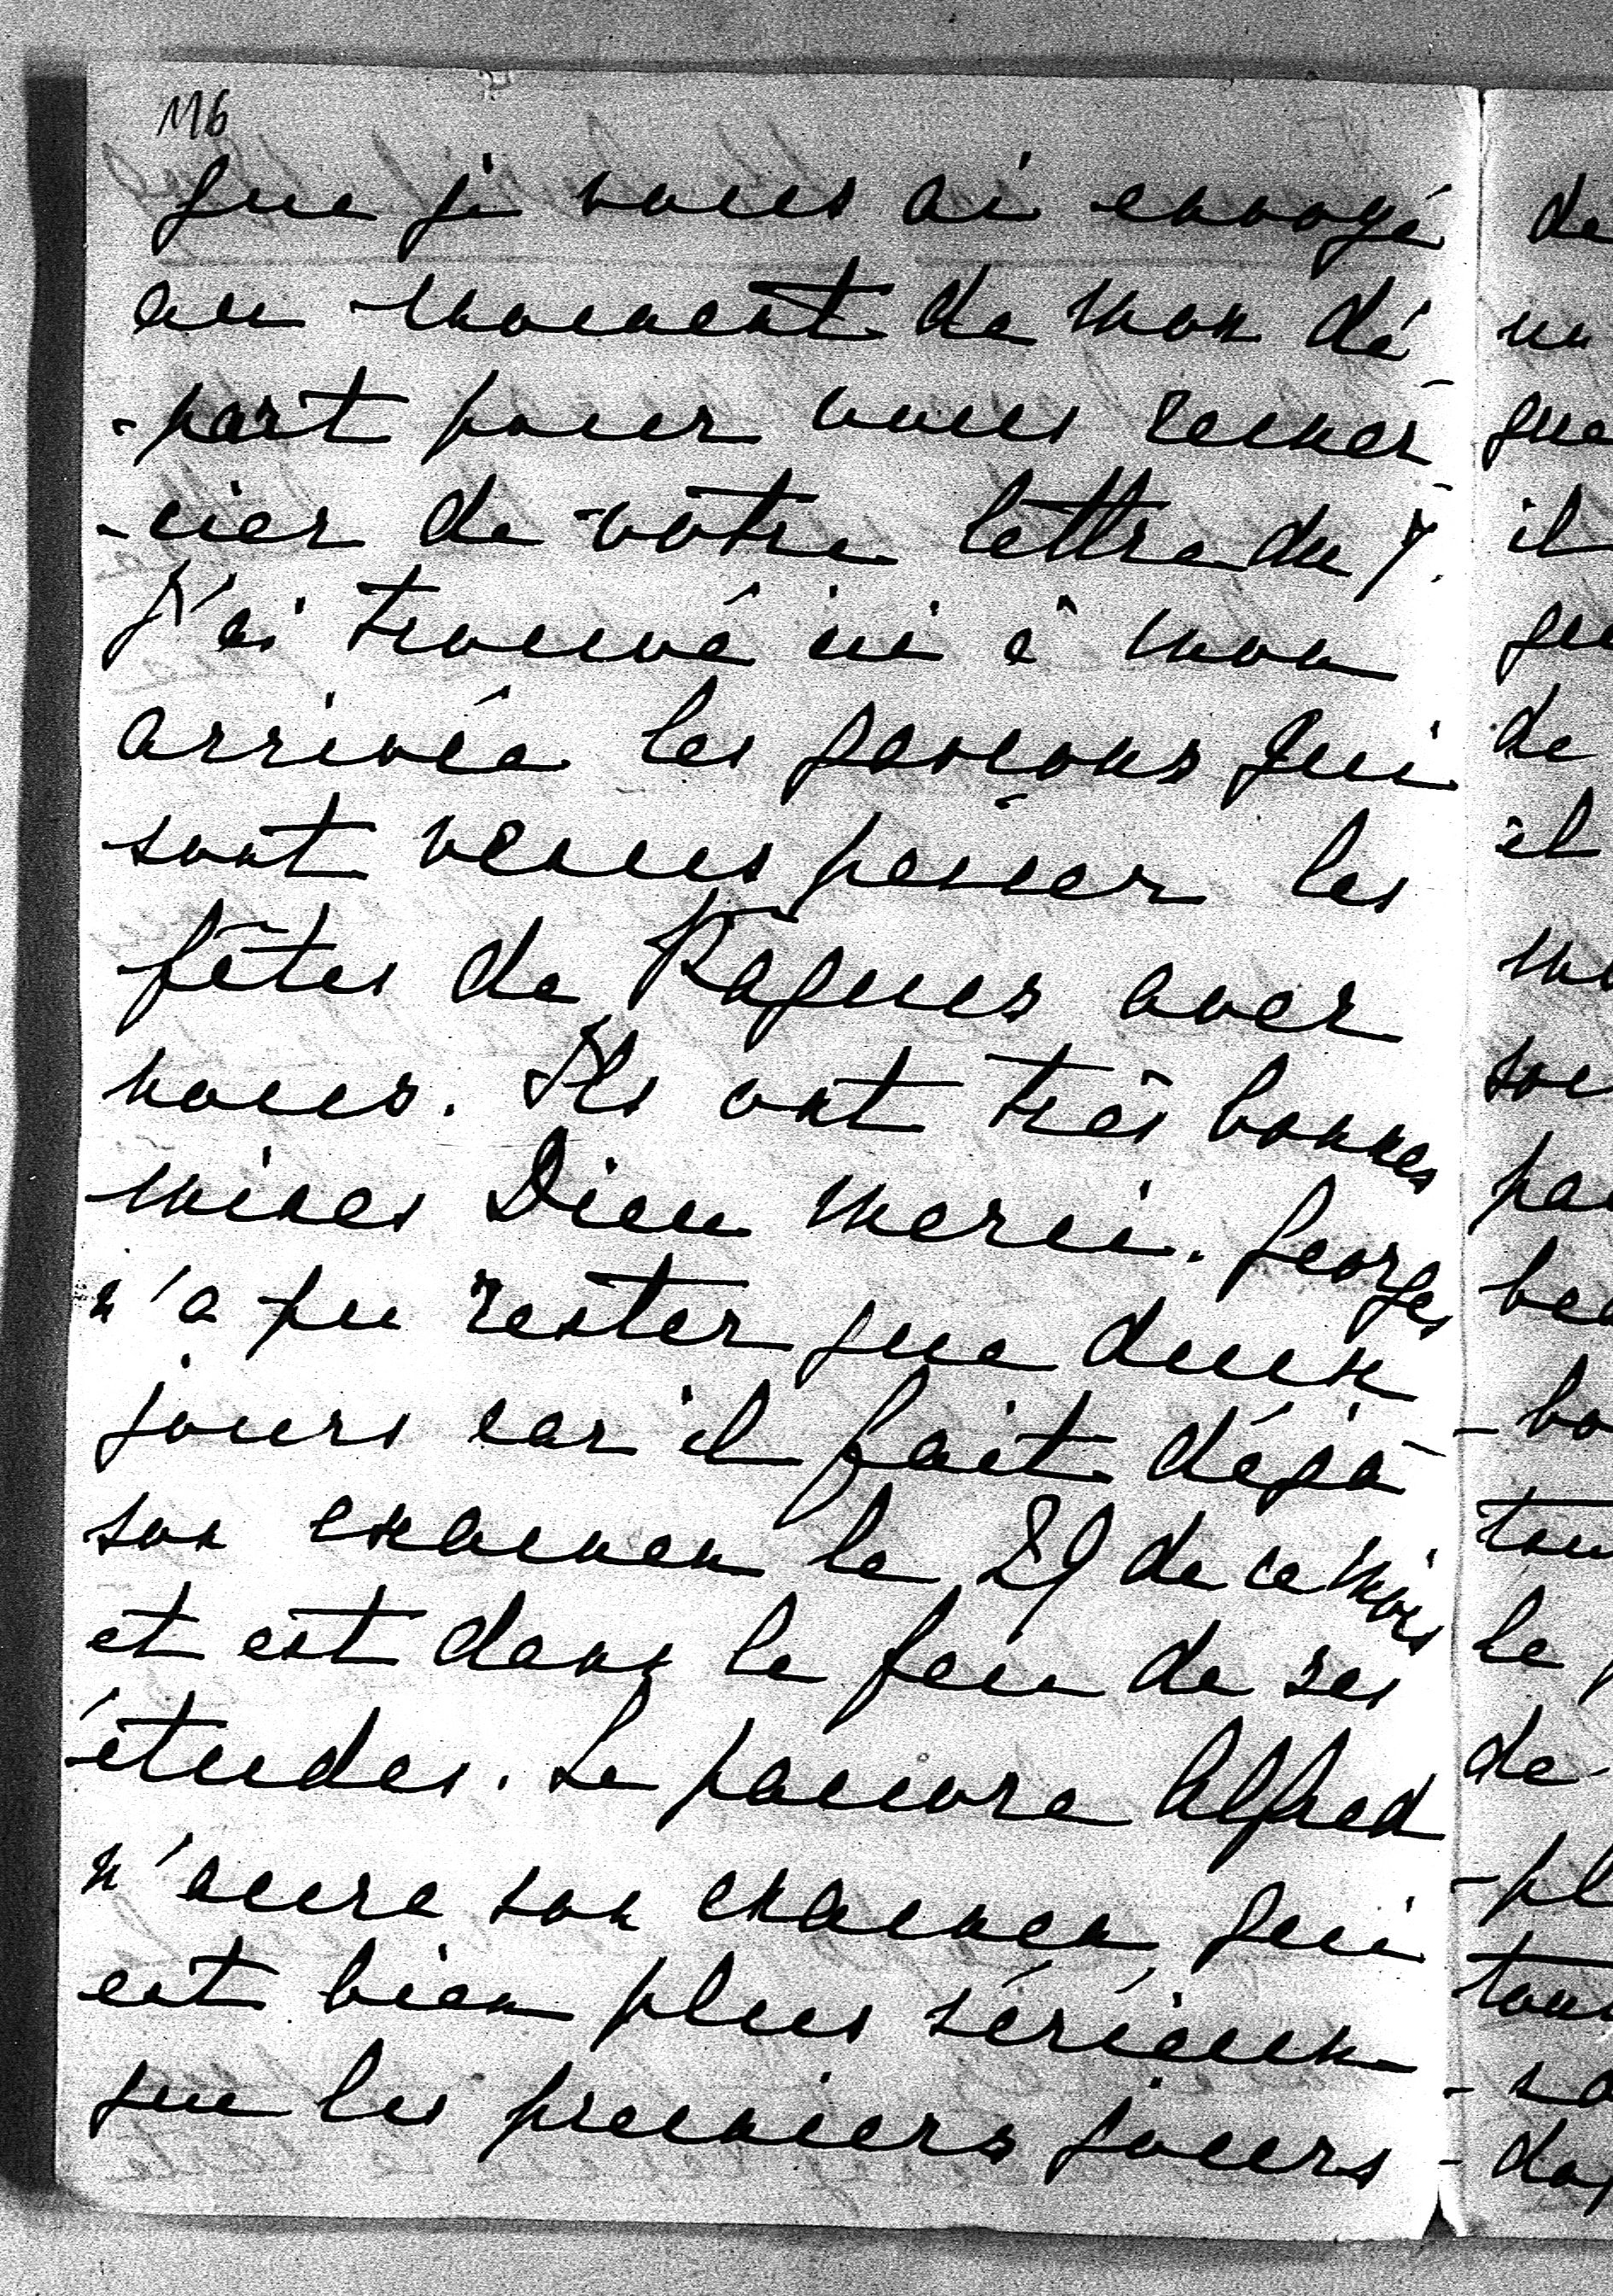 116
que je vous ai envoyé
au moment de mon dé
-part pour vous remer-
-cier de votre lettre du 7.
J'ai trouvé ici à mon
arrivée les garçons qui
sont venus passer les
fêtes de Pâques avec
nous. Ils ont très bonnes
mines Dieu merci. Georges
n'a pu rester que deux
jours car il fait déjà
son examen le 29 de ce mois
et est dans le feu de ses
études. Le pauvre Alfred
n'aura son examen qui
est bien plus sérieux
que les premiers jours
de
que
il
de
il
le
de